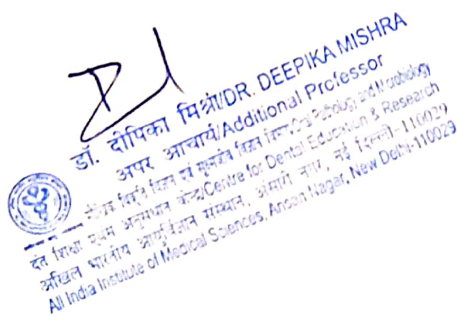 डॉ. दीपिका मिश्रा/DR. DEEPIKA MISHRA
अपर आचार्य/Additional Professor
Oral Pathology and Microbiology
दंत शिक्षा एवं अनुसंधान केन्द्र/Centre for Dental Education & Research
अखिल भारतीय आयुर्विज्ञान संस्थान, अंसारी नगर, नई दिल्ली-110029
All India Institute of Medical Sciences, Ansari Nagar, New Delhi-110029